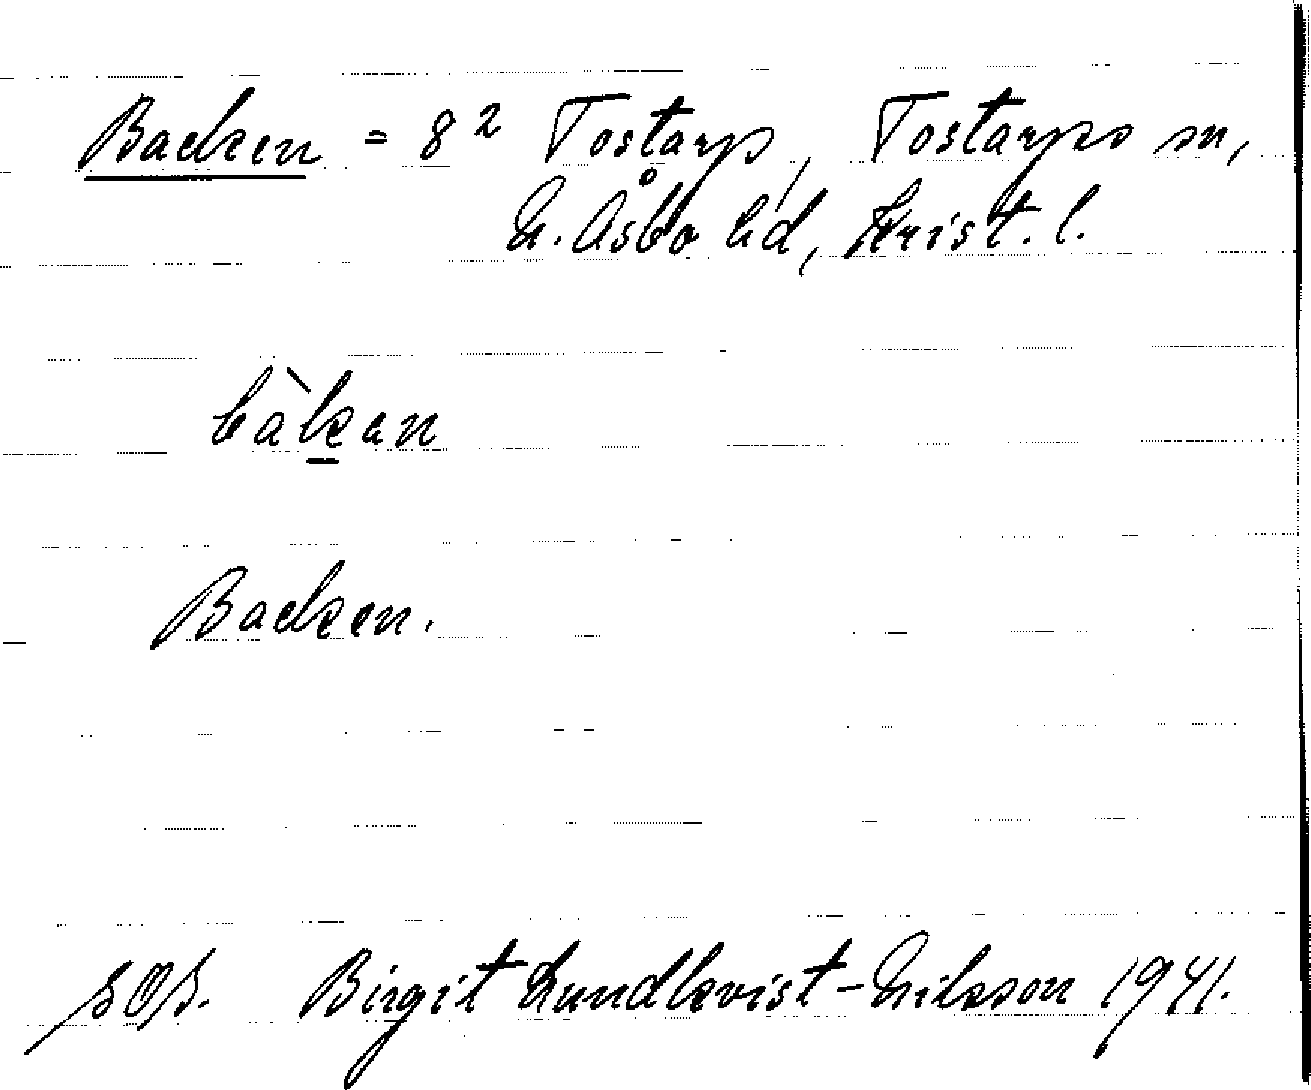 Backen = 8² Tostarp, Tostarps sn,
N. Åsbo hd, Krist. l.
bàkan
Backen.
SOS. Birgit Lundkvist-Nilsson 1941.